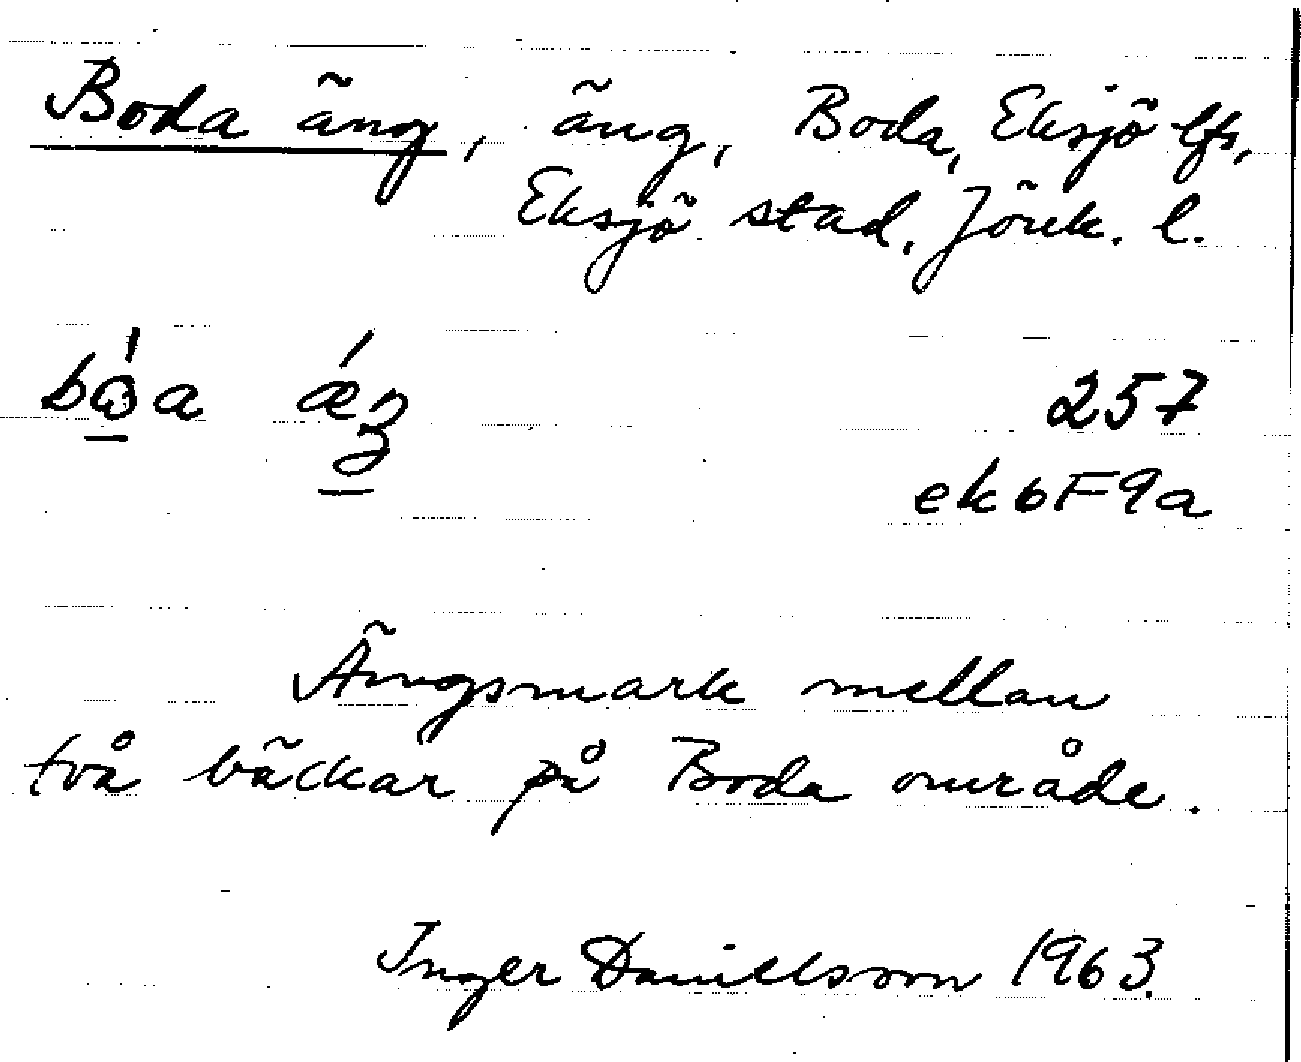 Boda äng, äng, Boda, Eksjö lfs,
Eksjö stad, Jönk. l.
257
ek6F9a
Ängsmark mellan
två bäckar på Boda område.
Inger Daniellsson 1963.